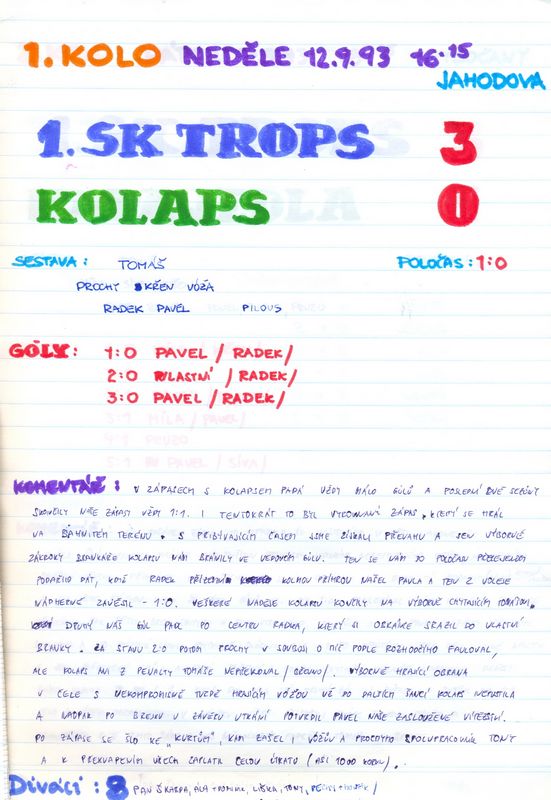 1. KOLO NEDĚLE 12.9.93 16.15
JAHODOVA
1. SK TROPS 3
KOLAPS 0
SESTAVA: TOMÁŠ POLOČAS: 1:0
PROCHY KŘEN VÓŽA
RADEK PAVEL PILOUS
GÓLY: 1:0 PAVEL / RADEK /
2:0 VLASTNÍ / RADEK /
3:0 PAVEL / RADEK /
KOMENTÁŘ: V ZÁPASECH S KOLAPSEM PADÁ VŽDY MÁLO GÓLŮ A POSLEDNÍ DVĚ SEZÓNY
SKONČILY NAŠE ZÁPASY VŽDY 1:1. I TENTOKRÁT TO BYL VYROVNANÝ ZÁPAS, KTERÝ SE HRÁL
NA BAHNITÉM TERÉNU. S PŘIBÝVAJÍCÍM ČASEM JSME ZÍSKALI PŘEVAHU A JEN VÝBORNÉ
ZÁKROKY BRANKÁŘE KOLAPSU NÁM BRÁNILY VE VEDOUCÍM GÓLU. TEN SE NÁM DO POLOČASU
PODAŘILO DÁT, KDYŽ RADEK KOLMOU PŘIHROU NAŠEL PAVLA A TEN Z VOLEJE
NÁDHERNĚ ZAVĚSIL - 1:0. VEŠKERÉ NADĚJE KOLAPSU KONČILY NA VÝBORNĚ CHYTAJÍCÍM TOMÁŠOVI.
DRUHÝ NÁŠ GÓL PADL PO CENTRU RADKA, KTERÝ SI OBRÁNCE SRAZIL DO VLASTNÍ
BRANKY. ZA STAVU 2:0 POTOM PROCHY V SOUBOJI O MÍČ PODLE ROZHODČÍHO FAULOVAL,
ALE KOLAPS ANI Z PENALTY TOMÁŠE NEPŘEKONAL / BŘEVNO /. VÝBORNĚ HRAJÍCÍ OBRANA
V ČELE S NEKOMPROMISNĚ TVRDĚ HRAJÍCÍM VÓŽOU UŽ DO DALŠÍCH ŠANCÍ KOLAPS NEPUSTILA
A NAOPAK PO BŘEVNU V ZÁVĚRU UTKÁNÍ POTVRDIL PAVEL NAŠE ZASLOUŽENÉ VÍTĚZSTVÍ.
PO ZÁPASE SE ŠLO KE "KURTŮM", KAM ZAŠEL I VÓŽŮV A PROCHYHO SPOLUPRACOVNÍK TONY
A K PŘEKVAPENÍ VŠECH ZAPLATIL CELOU ÚTRATU (ASI 1000 KORUN).
DIVÁCI: 8 PAN ŠKARDA, ALA + DOMINIK, LIŠKA, TONY,